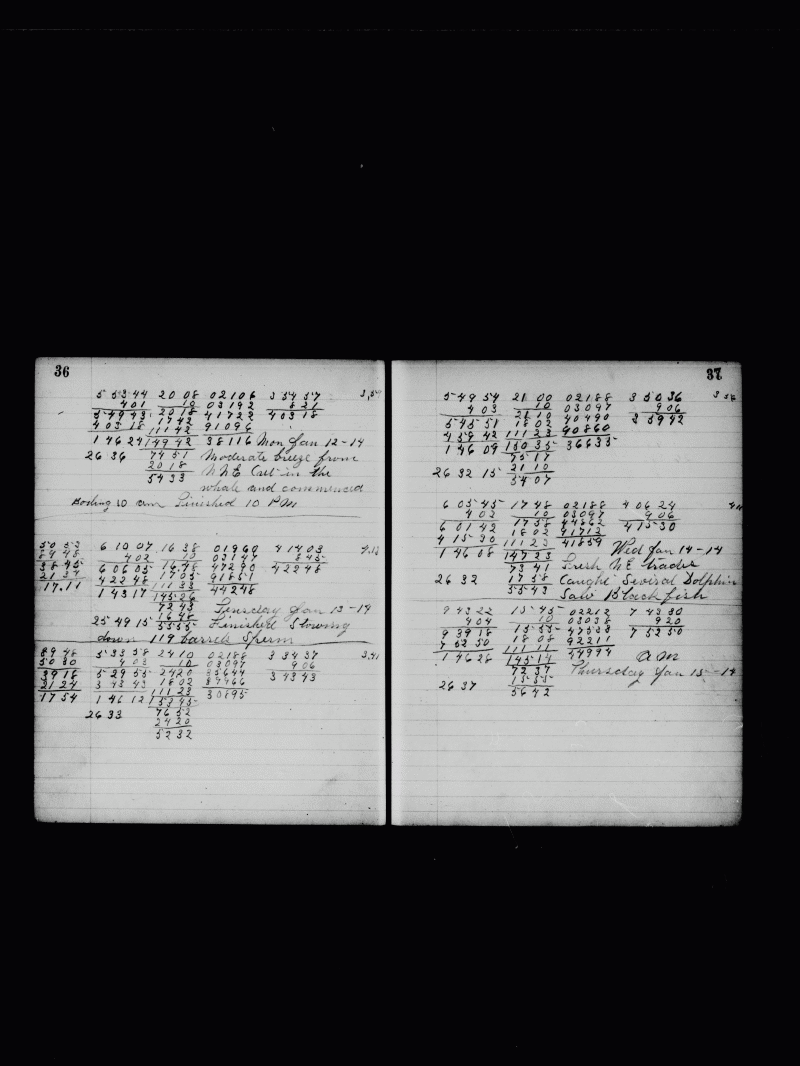 36
5 53 44 20 08 02106 3 54 57 3,54
401 10 03192 8 21
5 49 43 20 18 41722 4 03 18
4 03 18 17 42 91096
1 46 24 149 42 38116 Mon Jan 12-14
26 36 74 51 Moderate breeze from
20 18 NNE Cut in the
54 33 whale and commenced
Boiling 10 am Finished 10 PM
6 10 07 16 38 01960 4 14 03
402 10 03147 8 45
6 06 05 16 48 47290 4 22 48
4 22 48 17 05 91851
1 43 17 145 26 44248
72 43 Jan 13-14
25 49 15 16 48 Finished Stowing
55 55
down 119 barrels Sperm
89 48 5 33 58 24 10 02188 3 34 37 3,41
50 30 4 03 10 03097 9 06
39 18 5 29 55 24 20 35644 3 43 43
21 24 3 43 43 18 02 87966
17 54 1 46 12 111 23 30895
26 33 76 52
24 20
52 32
37
5 49 54 21 00 02188 3 50 36
4 03 10 03097 9 06
5 45 51 21 10 40490 3 59 42
4 59 42 18 02 90860
1 46 09 111 23 36635
150 35
75 17
26 32 15 21 10
54 07
6 05 45 17 48 02188 4 06 24
4 02 10 03097 9 06
6 01 42 17 58 44862 4 15 30
4 15 30 18 02 91712
1 46 08 111 23 41859 Wed Jan 14-14
147 23
73 41 Fresh NE trades
26 32 17 58 Caught Several Dolphin
55 43 Saw Black fish
9 43 22 15 45 02212 7 43 30
4 04 10 03038 9 20
9 39 18 15 55 47523 7 52 50
7 52 50 18 08 92211
1 46 28 111 11 44994 a m
145 14
72 37 Thursday Jan 15-14
26 37 15 55
56 42